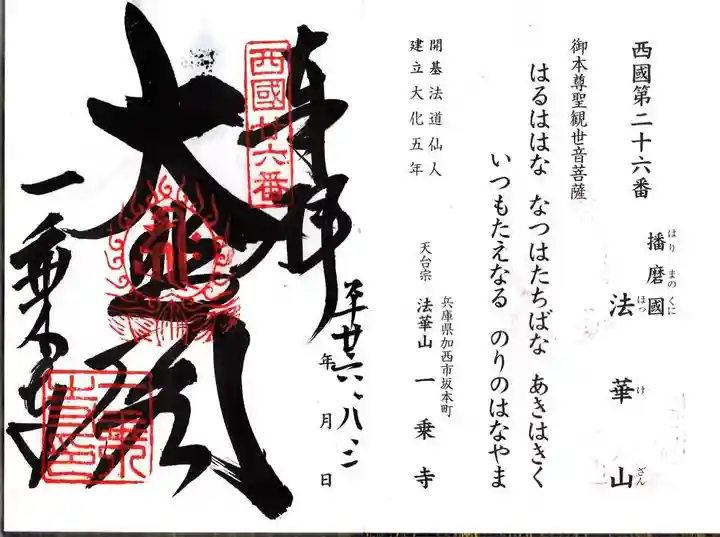 西國第二十六番
播磨國
はり まの くに
法華山
ほっ け ざん
御本尊聖観世音菩薩
はるははな なつはたちばな あきはきく
いつもたえなる のりのはなやま
開基法道仙人
建立大化五年
兵庫県加西市坂本町
天台宗 法華山 一乗寺
奉拝
平廿六、八、二
年 月 日
西國廿六番
大悲閣
一乗寺
一乗寺印